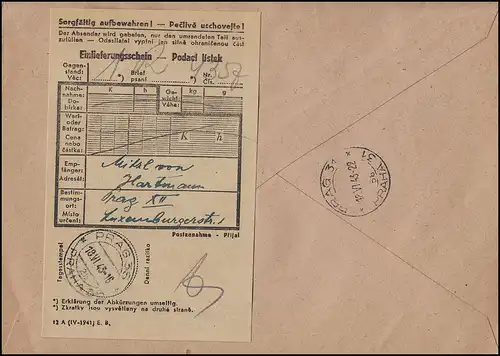 Sorgfältig aufbewahren! — Pečlivě uschovejte!
Der Absender wird gebeten, nur den umrandeten Teil auszufüllen — Odesílatel vyplní jen silně ohraničenou část
Einlieferungsschein — Podací lístek
Gegenstand: Věc:
*) Brief psaní
*) Nr. Čís. 4357
Nachnahme: Dobírka:
K h
Gewicht: Váha:
kg g
Wert- oder Betrag: Cena nebo částka:
K h
Empfänger: Adresát:
Mikel von
Hartmann
Bestimmungsort: Místo určení:
Prag XII
Luxemburgerstr.
Postannahme — Přijal
Tagesstempel
PRAG 31
18.VI.43-18
PRAHA 31
Denní razítko
*) Erklärung der Abkürzungen umseitig.
*) Zkratky jsou vysvětleny na druhé straně.
12 A (IV-1941) E. B.
PRAG 31
PRAHA 31